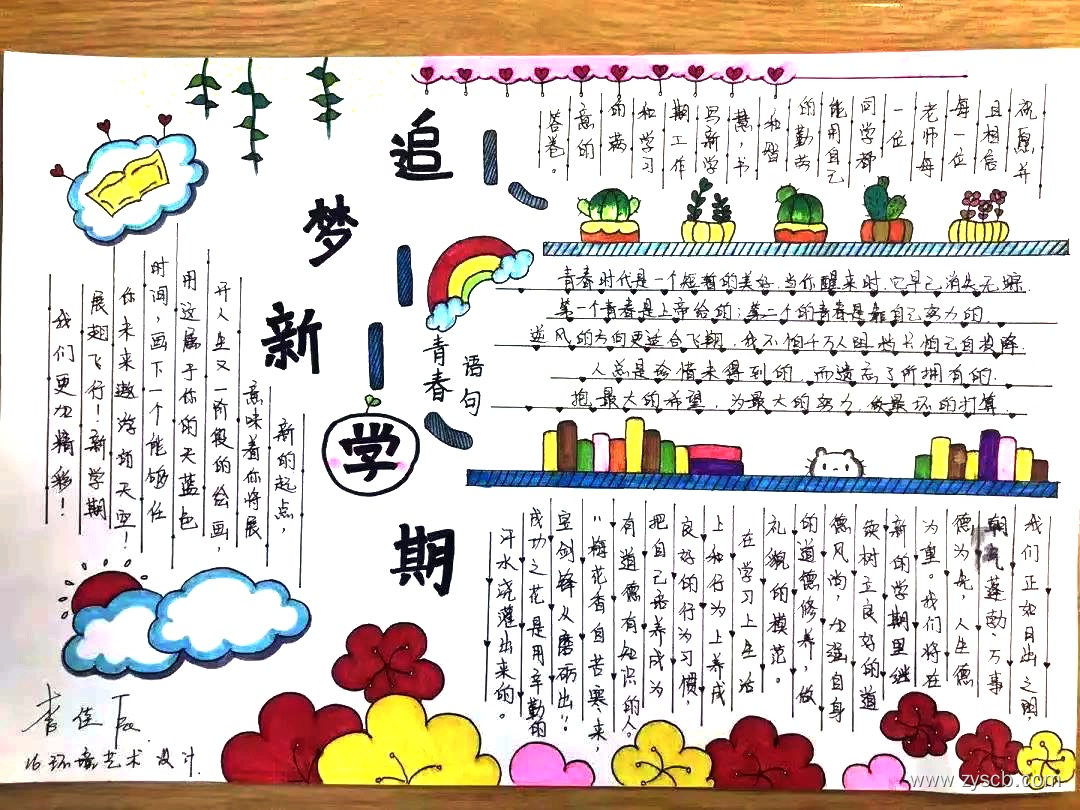 追
梦
新
学
期
祝愿并
且相信
每一位
老师每
一位
同学都
能用自己
的勤劳
和智
慧,书
写新学
期工作
和学习
的满
意的
答卷。
青春
语句
青春时代是一个短暂的美好,当你醒来时,它早已消失无踪.
第一个青春是上帝给的;第二个的青春是靠自己努力的.
逆风的方向更适合飞翔,我不怕千万人阻挡只怕自己投降.
人总是珍惜未得到的,而遗忘了所拥有的.
抱最大的希望,为最大的努力,做最坏的打算.
新的起点,
意味着你将展
开人生又一阶段的绘画,
用这属于你的天蓝色
时间,画下一个能够任
你未来遨游的天空!
展翅飞行!新学期
我们更加精彩!
我们正如日出之阳,
朝气蓬勃,万事
德为先,人生德
为重。我们将在
新的学期里继
续树立良好的道
德风尚,加强自身
的道德修养,做
礼貌的模范。
在学习上生活
上和行为上养成
良好的行为习惯,
把自己培养成为
有道德有知识的人。
"梅花香自苦寒来,
宝剑锋从磨砺出!"
成功之花是用辛勤的
汗水浇灌出来的。
李佳
16环境艺术设计.
www.zyscb.com